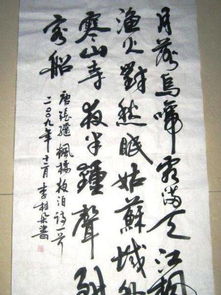 月落烏啼霜滿天江楓
漁火對愁眠姑蘇城外
寒山寺夜半鐘聲到
客船
唐張繼楓橋夜泊詩一首
二〇〇九年十二月李